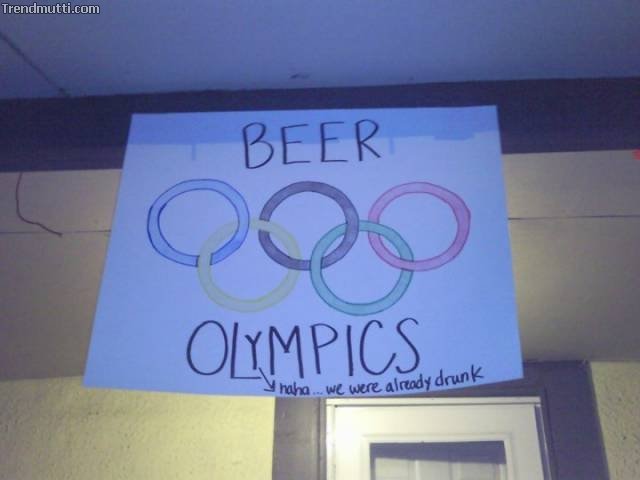 Trendmutti.com
BEER
OLYMPICS
haha... we were already drunk